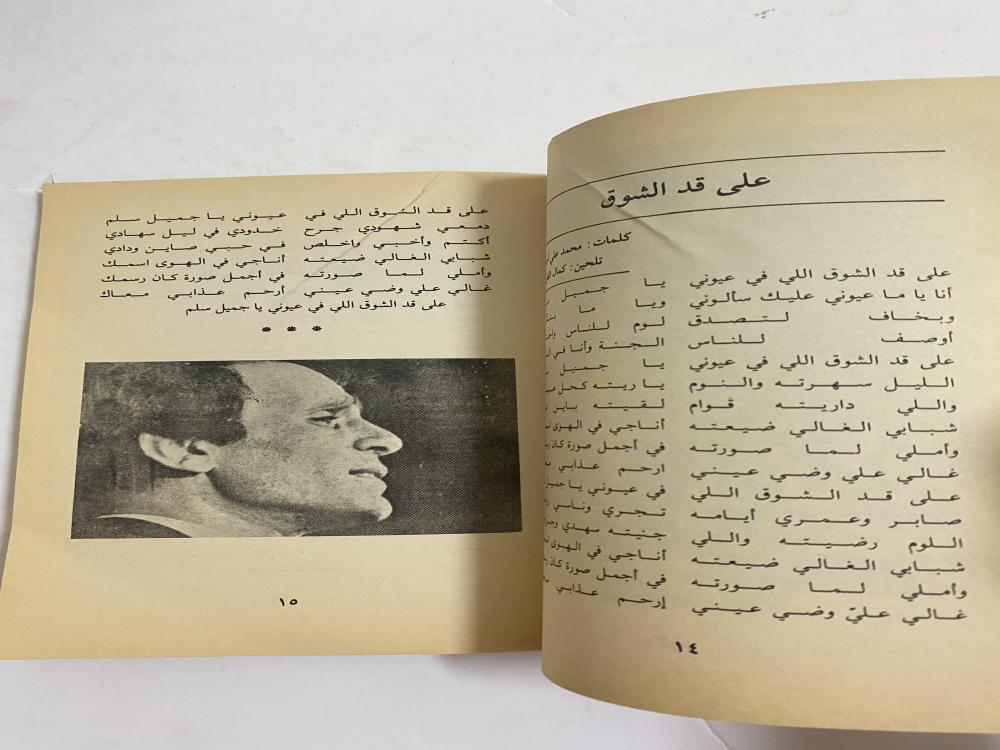 على قد الشوق
كلمات : محمد علي
تلحين : كمال
على قد الشوق اللي في عيوني يا جميل
أنا يا ما عيوني عليك سألوني ويا ما
وبخاف لتصدق لوم للناس
أوصف للناس الجنة وأنا في
على قد الشوق اللي في عيوني يا جميل
الليل سهرته والنوم يا ريته كحل
واللي داريته قوام لقيته باين
شبابي الغالي ضيعته أناجي في الهوى
وأملي لما صورته في أجمل صورة كان
غالي علي وضي عيني ارحم عذابي
على قد الشوق اللي في عيوني يا جميل
صابر وعمري أيامه تجري وناسي
اللوم رضيته واللي جنيته سهدي
شبابي الغالي ضيعته أناجي في الهوى
وأملي لما صورته في أجمل صورة كان
غالي عليّ وضي عيني إرحم عذابي
١٤
على قد الشوق اللي في عيوني يا جميل سلم
دمعي شهودي جرح خدودي في ليل سهادي
أكتم وأخبي واخلص في حبي صاين ودادي
شبابي الغالي ضيعته أناجي في الهوى اسمك
وأملي لما صورته في أجمل صورة كان رسمك
غالي علي وضي عيني أرحم عذابي معاك
على قد الشوق اللي في عيوني يا جميل سلم
* * *
١٥